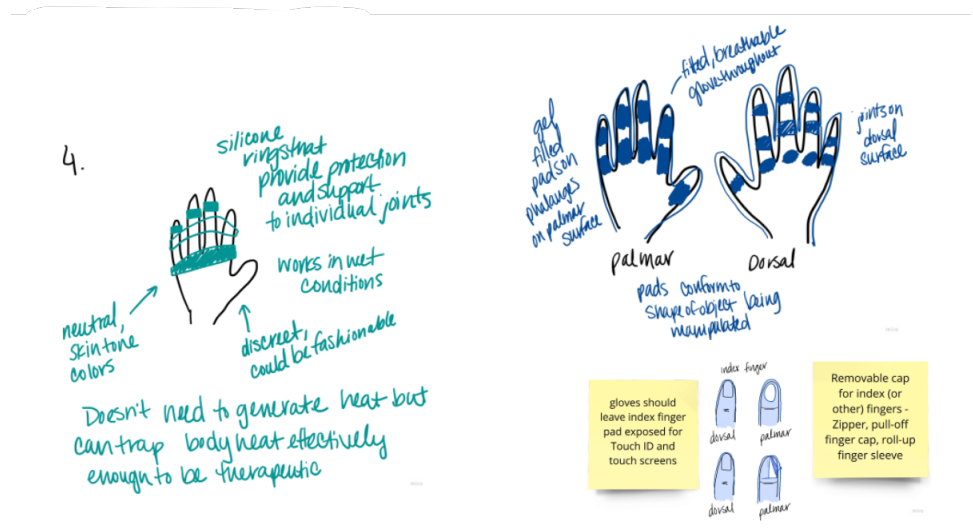 4.
silicone
rings that
provide protection
and support
to individual joints
works in wet
conditions
neutral,
skin tone
colors
discreet,
could be fashionable
Doesn't need to generate heat but
can trap body heat effectively
enough to be therapeutic
fitted, breathable
glove throughout
gel
filled
pads on
phalanges
on palmar
surface
joints on
dorsal
surface
palmar
Dorsal
pads conform to
shape of object being
manipulated
gloves should
leave index finger
pad exposed for
Touch ID and
touch screens
index finger
dorsal
palmar
dorsal
palmar
Removable cap
for index (or
other) fingers -
Zipper, pull-off
finger cap, roll-up
finger sleeve